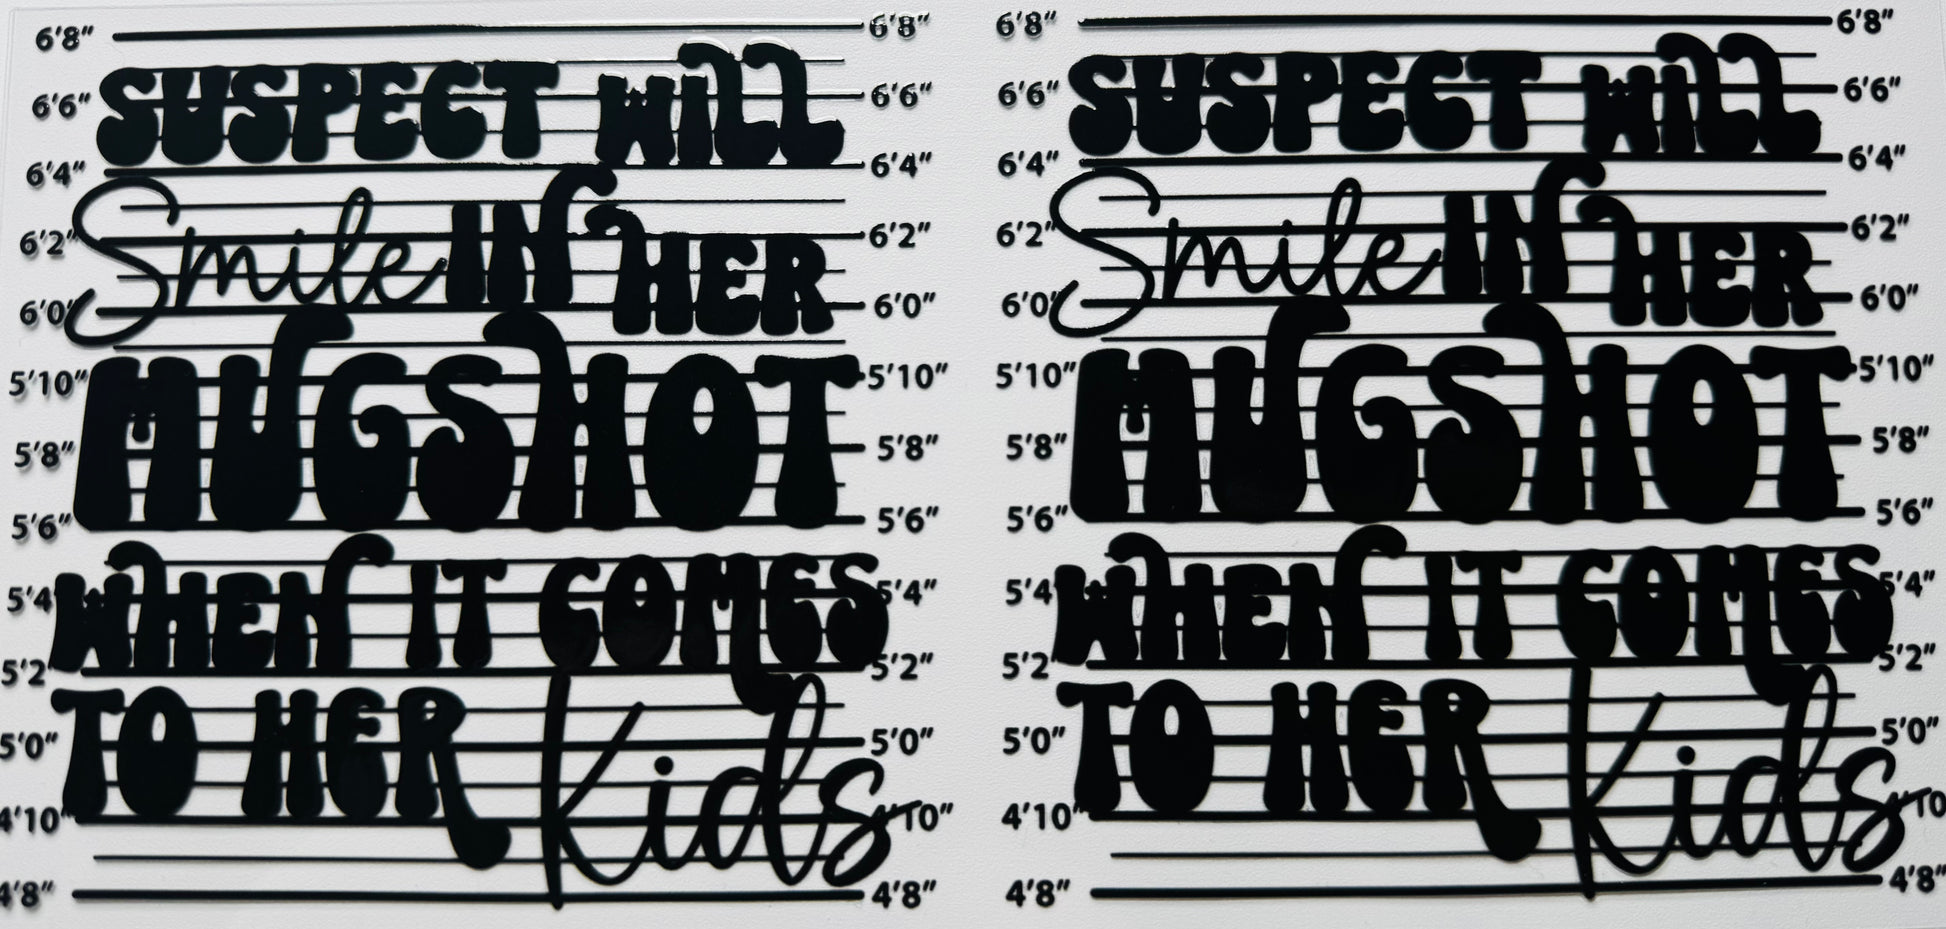 6'8" 6'8"
SUSPECT WILL
6'6" 6'6"
6'4" 6'4"
Smile IN HER
6'2" 6'2"
6'0" 6'0"
MUGSHOT
5'10" 5'10"
5'8" 5'8"
5'6" 5'6"
WHEN IT COMES
5'4" 5'4"
5'2" 5'2"
TO HER Kids
5'0" 5'0"
4'10" 4'10"
4'8" 4'8"
6'8" 6'8"
SUSPECT WILL
6'6" 6'6"
6'4" 6'4"
Smile IN HER
6'2" 6'2"
6'0" 6'0"
MUGSHOT
5'10" 5'10"
5'8" 5'8"
5'6" 5'6"
WHEN IT COMES
5'4" 5'4"
5'2" 5'2"
TO HER Kids
5'0" 5'0"
4'10" 4'10
4'8" 4'8"